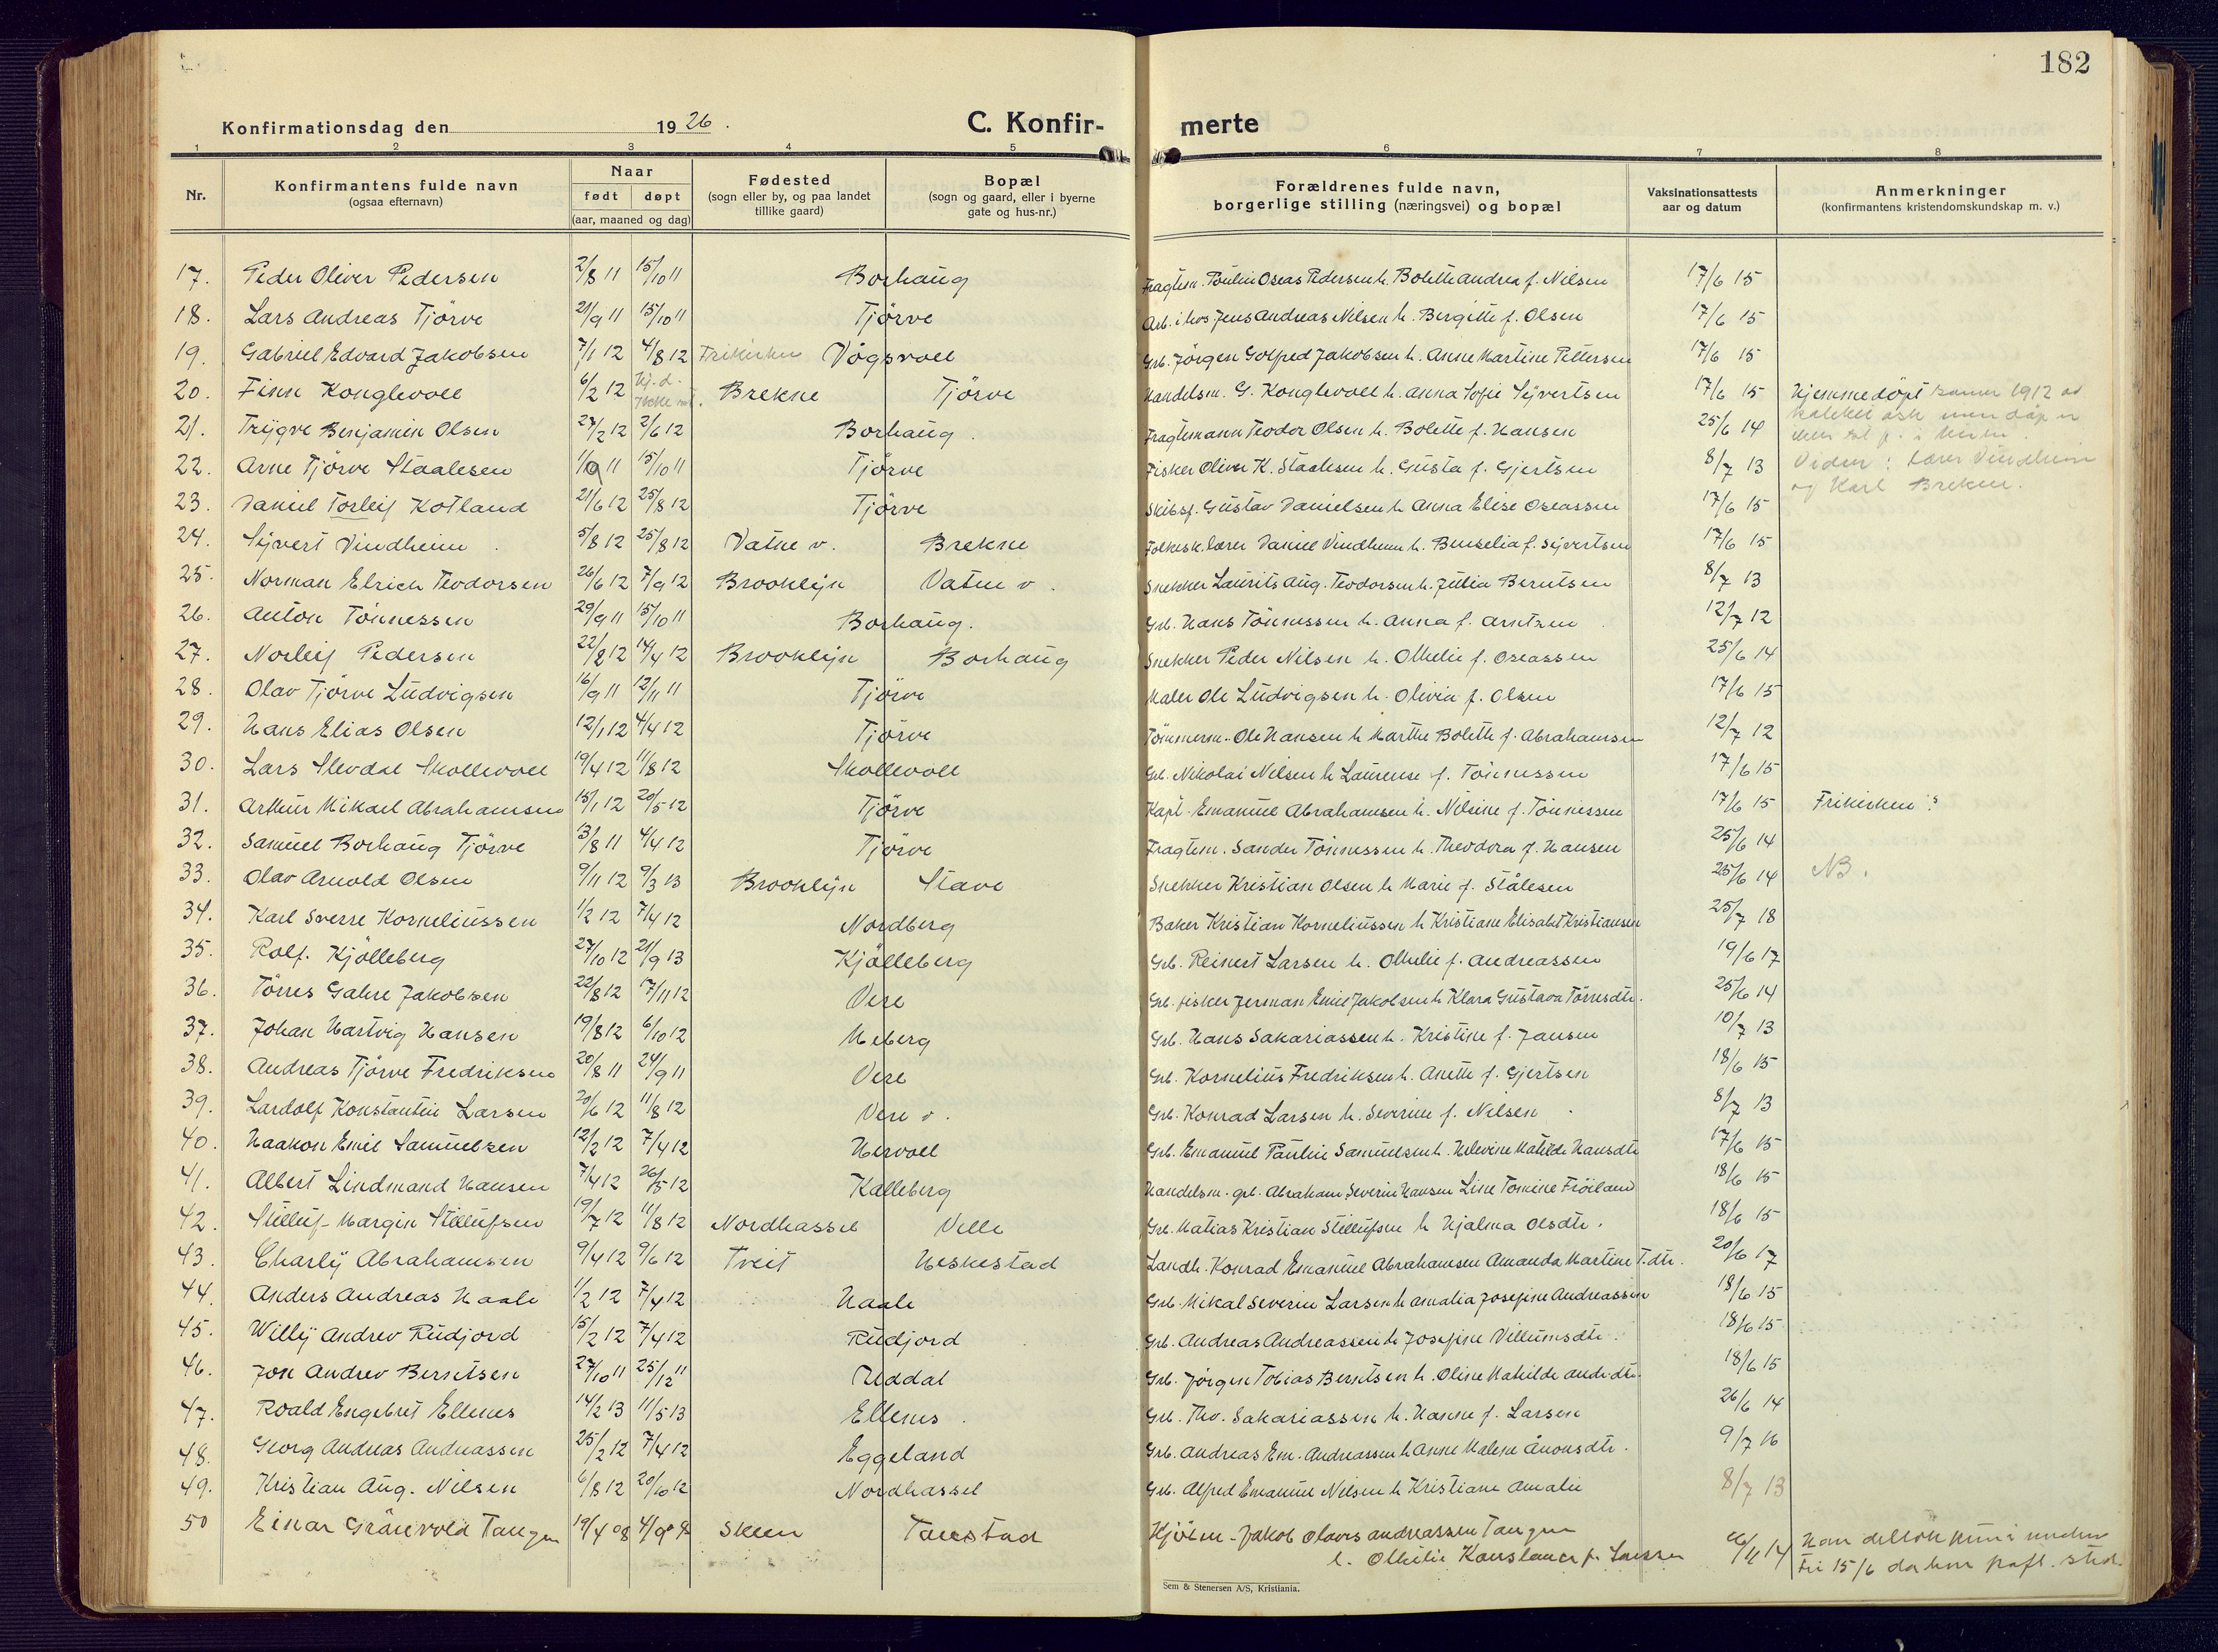 182
Konfirmationsdag den 1926.
C. Konfir-
merte
1 2 3 4 5 6 7 8
Nr.
Konfirmantens fulde navn
(ogsaa efternavn)
Naar
født døpt
(aar, maaned og dag)
Fødested
(sogn eller by, og paa landet
tillike gaard)
Bopæl
(sogn og gaard, eller i byerne
gate og hus-nr.)
Forældrenes fulde navn,
borgerlige stilling (næringsvei) og bopæl
Vaksinationsattests
aar og datum
Anmerkninger
(konfirmantens kristendomskundskap m. v.)
17. Peder Oliver Pedersen 2/8 11 15/10 11 Borhaug Fragtem. Paulin Oseas Pedersen h. Bolette Andrea f. Nilsen 17/6 15
18. Lars Andreas Tjörve 21/9 11 15/10 11 Tjörve Arb. i hos. Jens Andreas Nilsen h. Birgitte f. Olsen 17/6 15
19. Gabriel Edvard Jakobsen 7/1 12 4/8 12 Frikirken Vågsvoll Grb. Jörgen Golfred Jakobsen h. Anne Martine Pettersen 17/6 15
20. Finn Konglevoll 6/2 12 Hj.d. Brekne Tjörve Handelsm. G. Konglevoll h. Anna Sofie Syvertsen 17/6 15 Hjemmedöpt 1912 av
21. Trygve Benjamin Olsen 27/2 12 2/6 12 Borhaug. Fragtemann Teodor Olsen h. Bolette f. Hansen 25/6 14
22. Arne Tjörve Staalesen 1/9 11 15/10 11 Tjörve Fisker Oliver K. Staalesen h. Gusta f. Gjertsen 8/7 13 Vidner: Lærer Vindheim
23. Daniel Torleif Kotland 21/6 12 25/8 12 Tjörve Skibsf. Gustav Danielsen h Anna Elise Oseassen 17/6 15 og Karl Brekne.
24. Syvert Vindheim 5/8 12 25/8 12 Vatne v. Brekne Folkesk. lærer Daniel Vindheim h. Benselia f. Syvertsen 17/6 15
25. Norman Elrich Teodorsen 26/6 12 7/9 12 Brooklyn Vatne v. Snekker Laurits Aug. Teodorsen h. Julia Berntsen 8/7 13
26. Anton Tönnessen 29/9 11 15/10 11 Borhaug. Grb. Hans Tönnessen h. Anna f. Arntzen 12/7 12
27. Norleif Pedersen 22/2 12 14/4 12 Brooklyn Borhaug Snekker Peder Nilsen h. Othelie f. Oseassen 25/6 14
28. Olav Tjörve Ludvigsen 16/9 11 12/11 11 Tjörve Maler Ole Ludvigsen h. Olivia f. Olsen 17/6 15
29. Hans Elias Olsen 12/1 12 4/4 12 Tjörve Tömmerm. Ole Hansen h Marthe Bolette f. Abrahamsen 12/7 12
30. Lars Slevdal Skollevoll 19/4 12 11/8 12 Skollevoll Grb. Nikolai Nilsen h Laurense f. Tönnessen 17/6 15
31. Arthur Mikael Abrahamsen 15/1 12 20/5 12 Tjörve Kapt. Emanuel Abrahamsen h. Nilsine f. Tönnessen 17/6 15 Frikirken?
32. Samuel Borhaug Tjörve 13/8 11 4/4 12 Tjörve Fragtem. Sander Tönnessen h. Theodora f. Hansen 25/6 14
33. Olav Arnold Olsen 9/11 12 9/3 13 Brooklyn Stave Snekker Kristian Olsen h Marie f. Stålesen 25/6 14 NB.
34. Karl Sverre Korneliussen 1/2 12 7/4 12 Nordberg Baker Kristian Korneliussen h Kristiane Elisabet Kristiansen 25/7 18
35. Rolf. Kjölleberg 27/10 12 21/9 13 Kjölleberg Grb. Reinert Larsen h. Othelie f. Andreassen 19/6 17
36. Törres Gahre Jakobsen 22/8 12 17/11 12 Vere Grb. fisker Jerman Emil Jakobsen h Klara Gustava Törresdtr. 25/6 14
37. Johan Hartvig Hansen 19/8 12 6/10 12 Meberg Grb. Hans Sakariassen h. Kristine f. Jansen 10/7 13
38. Andreas Tjörve Fredriksen 20/8 11 24/9 11 Vere Grb. Kornelius Fredriksen h. Anette f. Gjertsen 18/6 15
39. Lardolf Konstantin Larsen 20/6 12 11/8 12 Vere v. Grb. Konrad Larsen h. Severine f. Nilsen 8/7 13
40. Haakon Emil Samuelsen 12/2 12 7/4 12 Hervoll Grb. Emanuel Paulin Samuelsen h. Helevine Matilde Hansdtr 17/6 15
41. Albert Lindmand Hansen 7/4 12 26/5 12 Kalleberg Handelsm. grb. Abraham Severin Hansen Line Tomine Fröiland 18/6 15
42. Stilluf Margin Stillufsen 19/7 12 11/8 12 Nordhassel Velle Grb. Matias Kristian Stillufsen h Hjalma Olsdtr. 18/6 15
43. Charly Abrahamsen 9/4 12 9/6 12 Tveit Heskestad Landh. Konrad Emanuel Abrahamsen Amanda Martine T.dtr. 20/6 17
44. Anders Andreas Haale 1/2 12 7/4 12 Haale Grb. Mikal Severin Larsen h Amalia Josefine Andreassen 18/6 15
45. Willy Andrev Rudjord 15/2 12 7/4 12 Rudjord Grb. Andreas Andreassen h Josefine Villumsdtr. 18/6 15
46. Jon Andrev Berntsen 27/10 11 25/12 11 Uddal Grb. Jörgen Tobias Berntsen h. Oline Mathilde Andr.dtr. 18/6 15
47. Roald Engebret Ellenes 14/2 13 11/5 13 Ellenes Grb. Thv. Sakariassen h. Hanne f. Larsen 26/6 14
48. Georg Andreas Andreassen 25/2 12 7/4 12 Eggeland Grb. Andreas Em. Andreassen h Anne Malene Ånonsdtr. 9/7 16
49. Kristian Aug. Nilsen 6/8 12 20/10 12 Nordhassel Grb. Alfred Emanuel Nilsen h Kristiane Amalie 8/7 13
50 Einar Grönvold Tangen 19/4 08 4/9 08 Skien Tanstad Hjölm. Jakob Olavis Andreassen Tangen Han deltok kun i underv
h. Othilie Konstance f. Larsen fri 15/6 da han
Sem & Stenersen A/S, Kristiania.